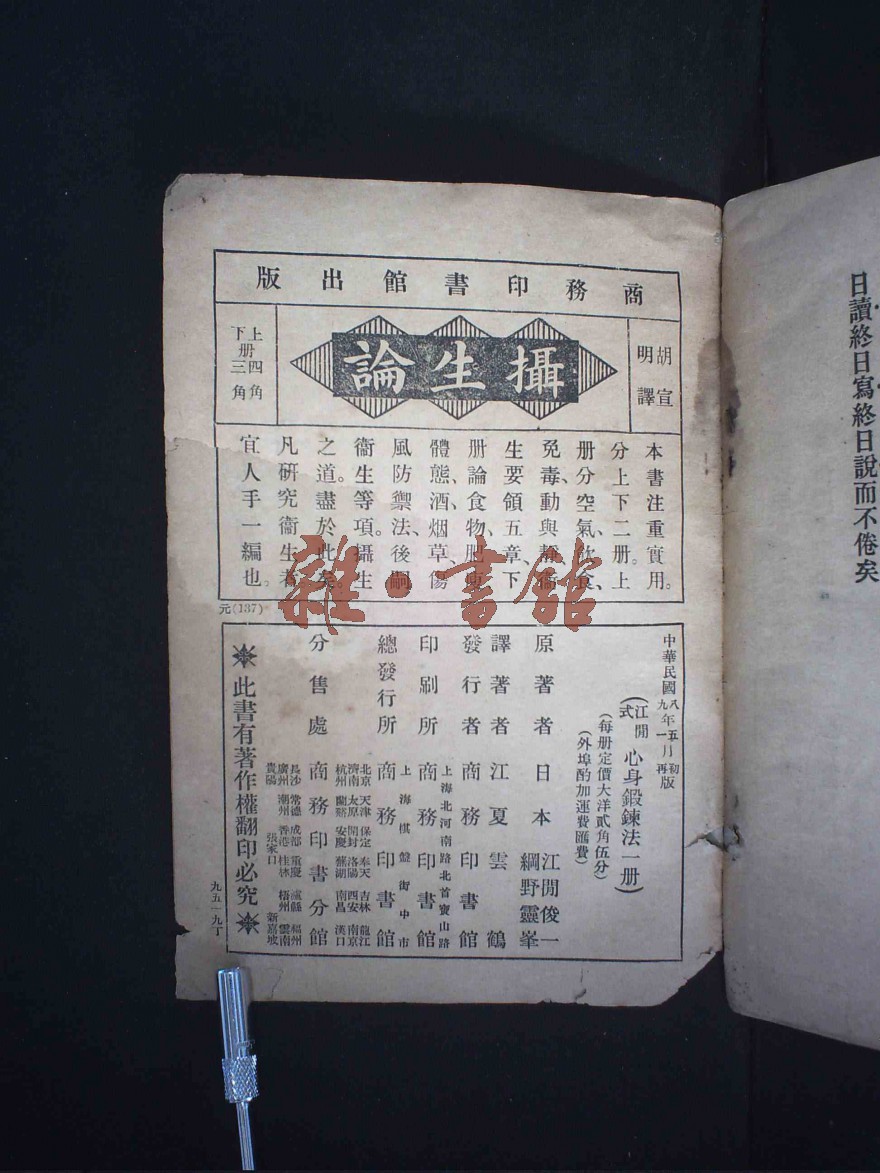 商務印書館出版
胡宣明譯
攝生論
上册四角
下册三角
本書注重實用。
分上下二册。上
册分空氣、飲食、
免毒、動與靜、衞
生要領五章、下
册論食物、肥瘦、
體態、酒、烟草、傷
風防禦法、後嗣
衞生等項。攝生
之道。盡於此矣。
凡研究衞生者。
宜人手一編也。
元(137)
中華民國八年五月初版
九年一月再版
(江間式心身鍛鍊法一册)
(每册定價大洋貳角伍分)
(外埠酌加運費匯費)
原著者 日本 江間俊一
綱野靈峯
譯著者 江夏雲鶴
發行者 商務印書館
上海北河南路北首寶山路
印刷所 商務印書館
上海棋盤街中市
總發行所 商務印書館
北京 天津 保定 奉天 吉林 龍江
濟南 太原 開封 洛陽 西安 南京
杭州 蘭谿 安慶 蕪湖 南昌 漢口
分售處 商務印書分館
長沙 常德 成都 重慶 瀘縣 福州
廣州 潮州 香港 桂林 梧州 雲南
貴陽 張家口 新嘉坡
此書有著作權翻印必究
九五一九丁
日讀終日寫終日說而不倦矣
雜·書館